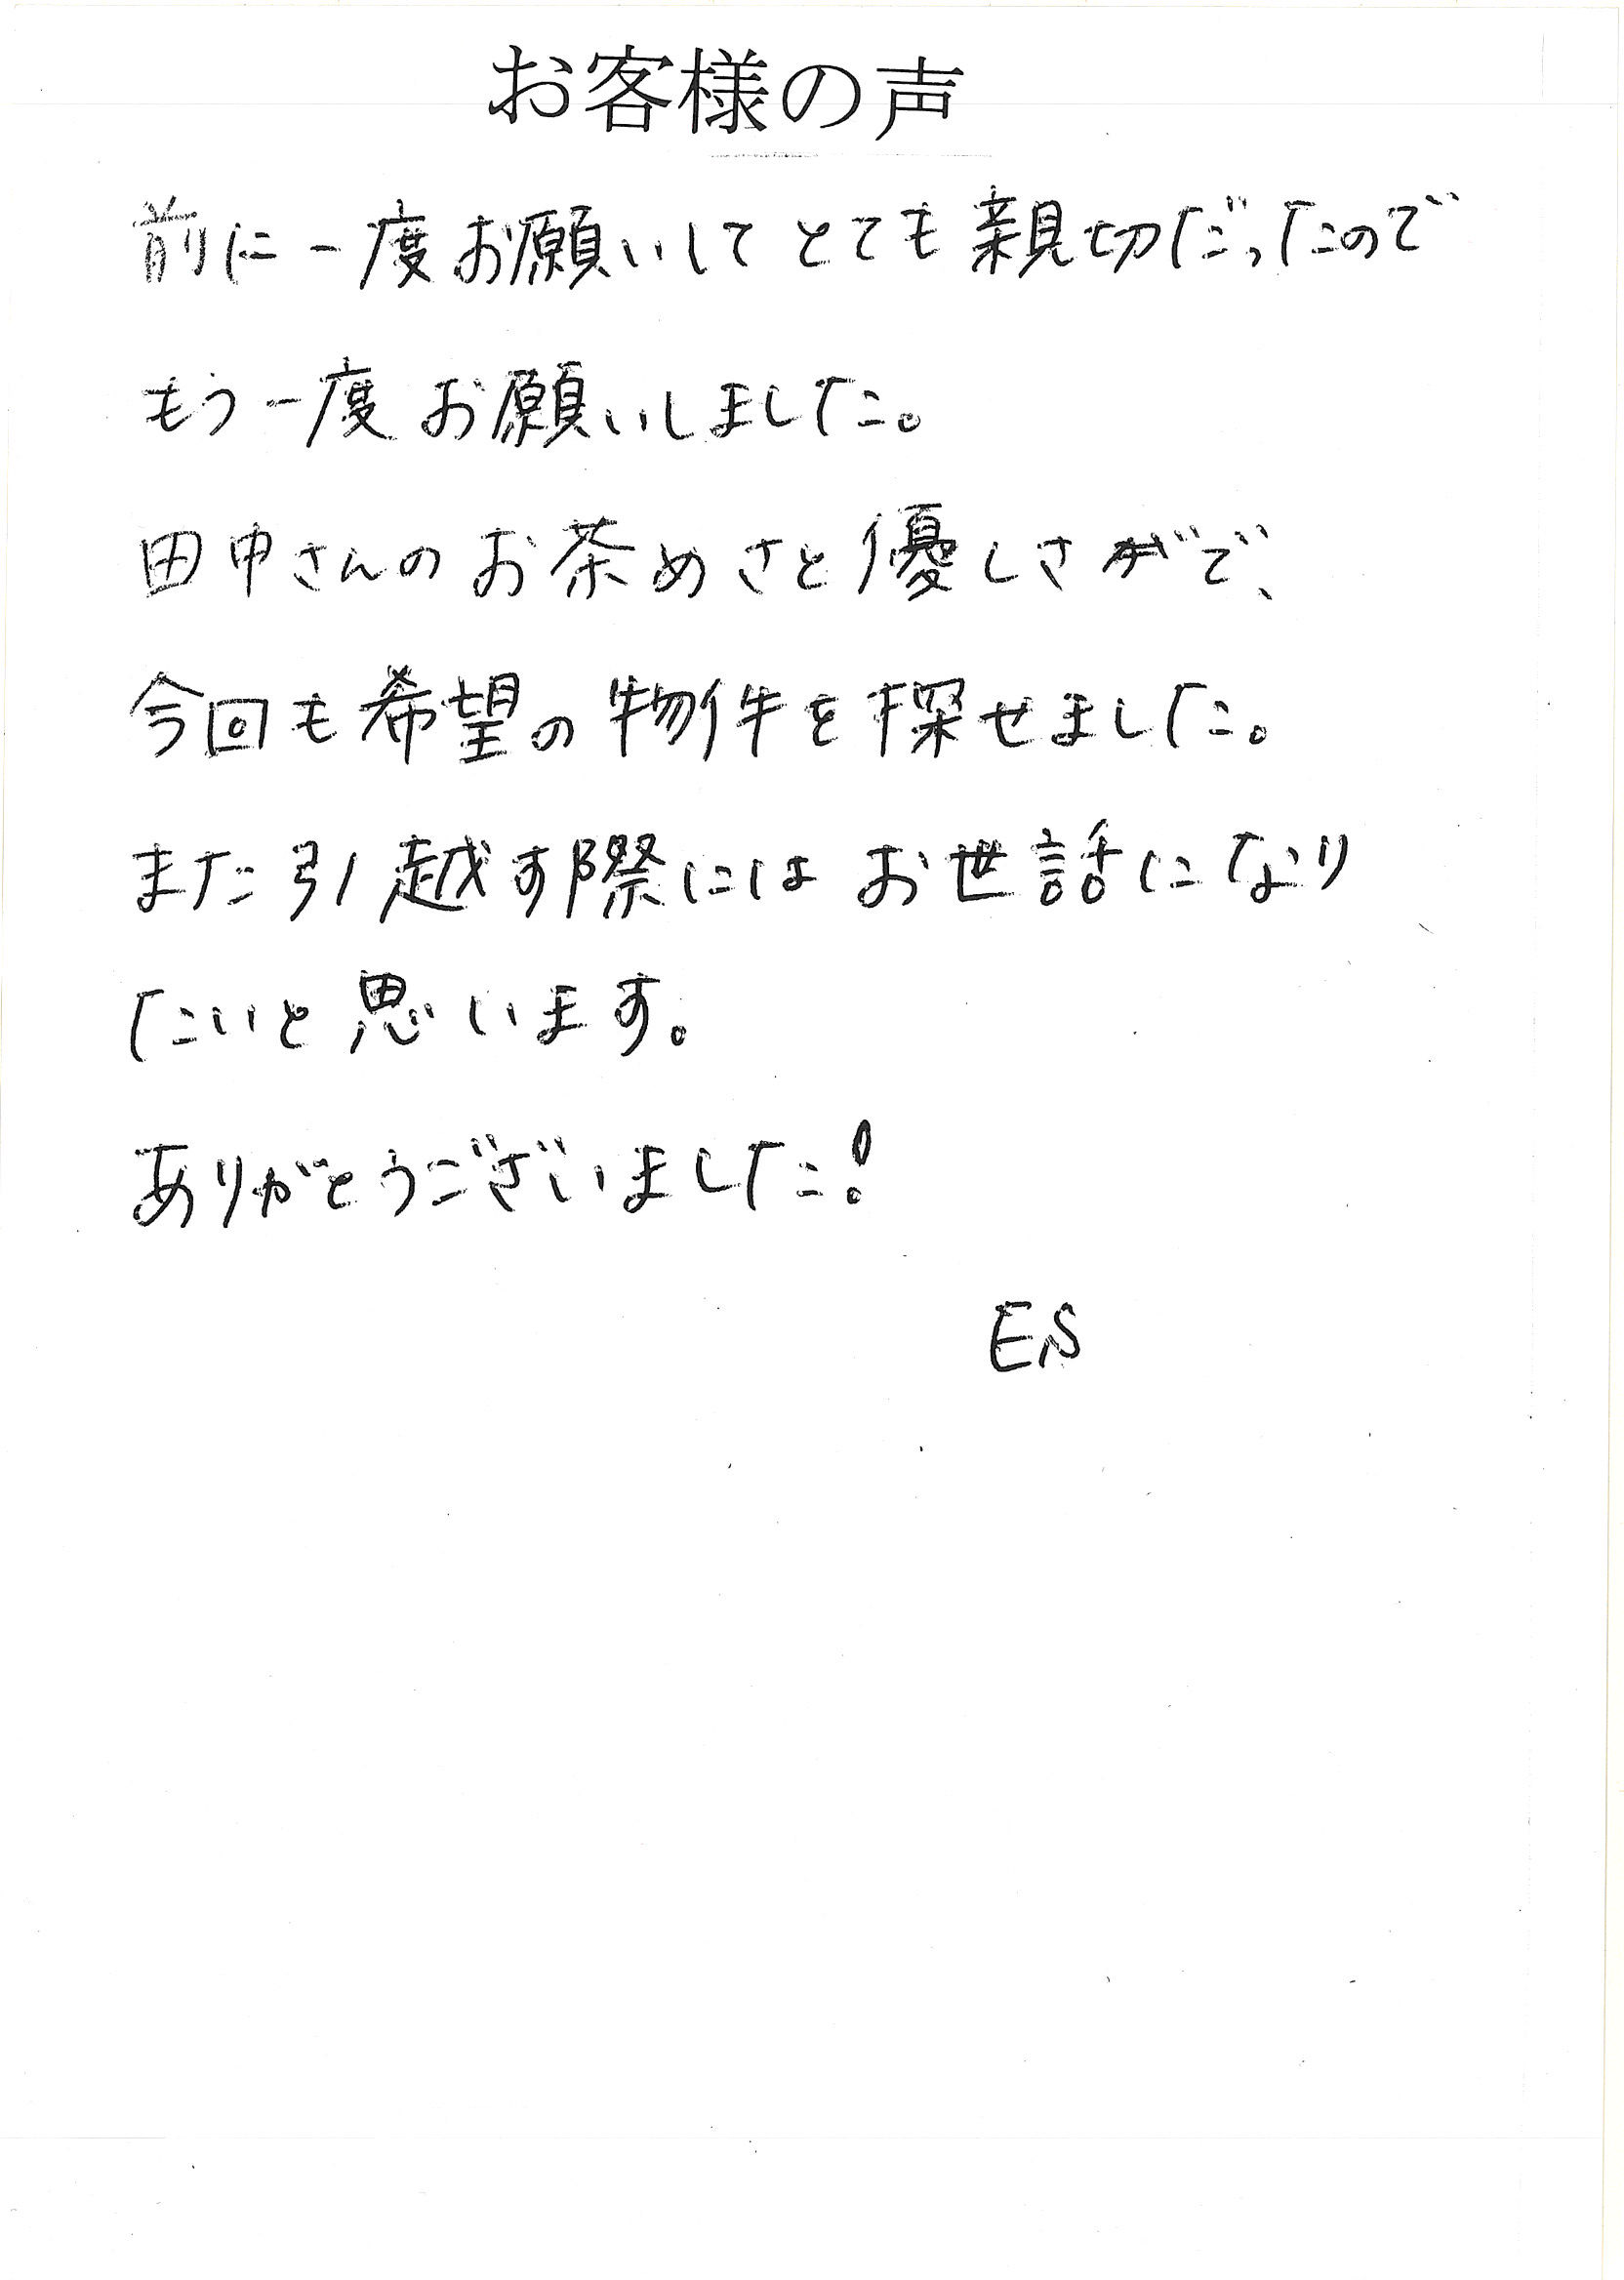 お客様の声
前に一度お願いしてとても親切だったので
もう一度お願いしました。
田中さんのお茶めさと優しさで、
今回も希望の物件を探せました。
また引越す際にはお世話になり
たいと思います。
ありがとうございました!
E.S